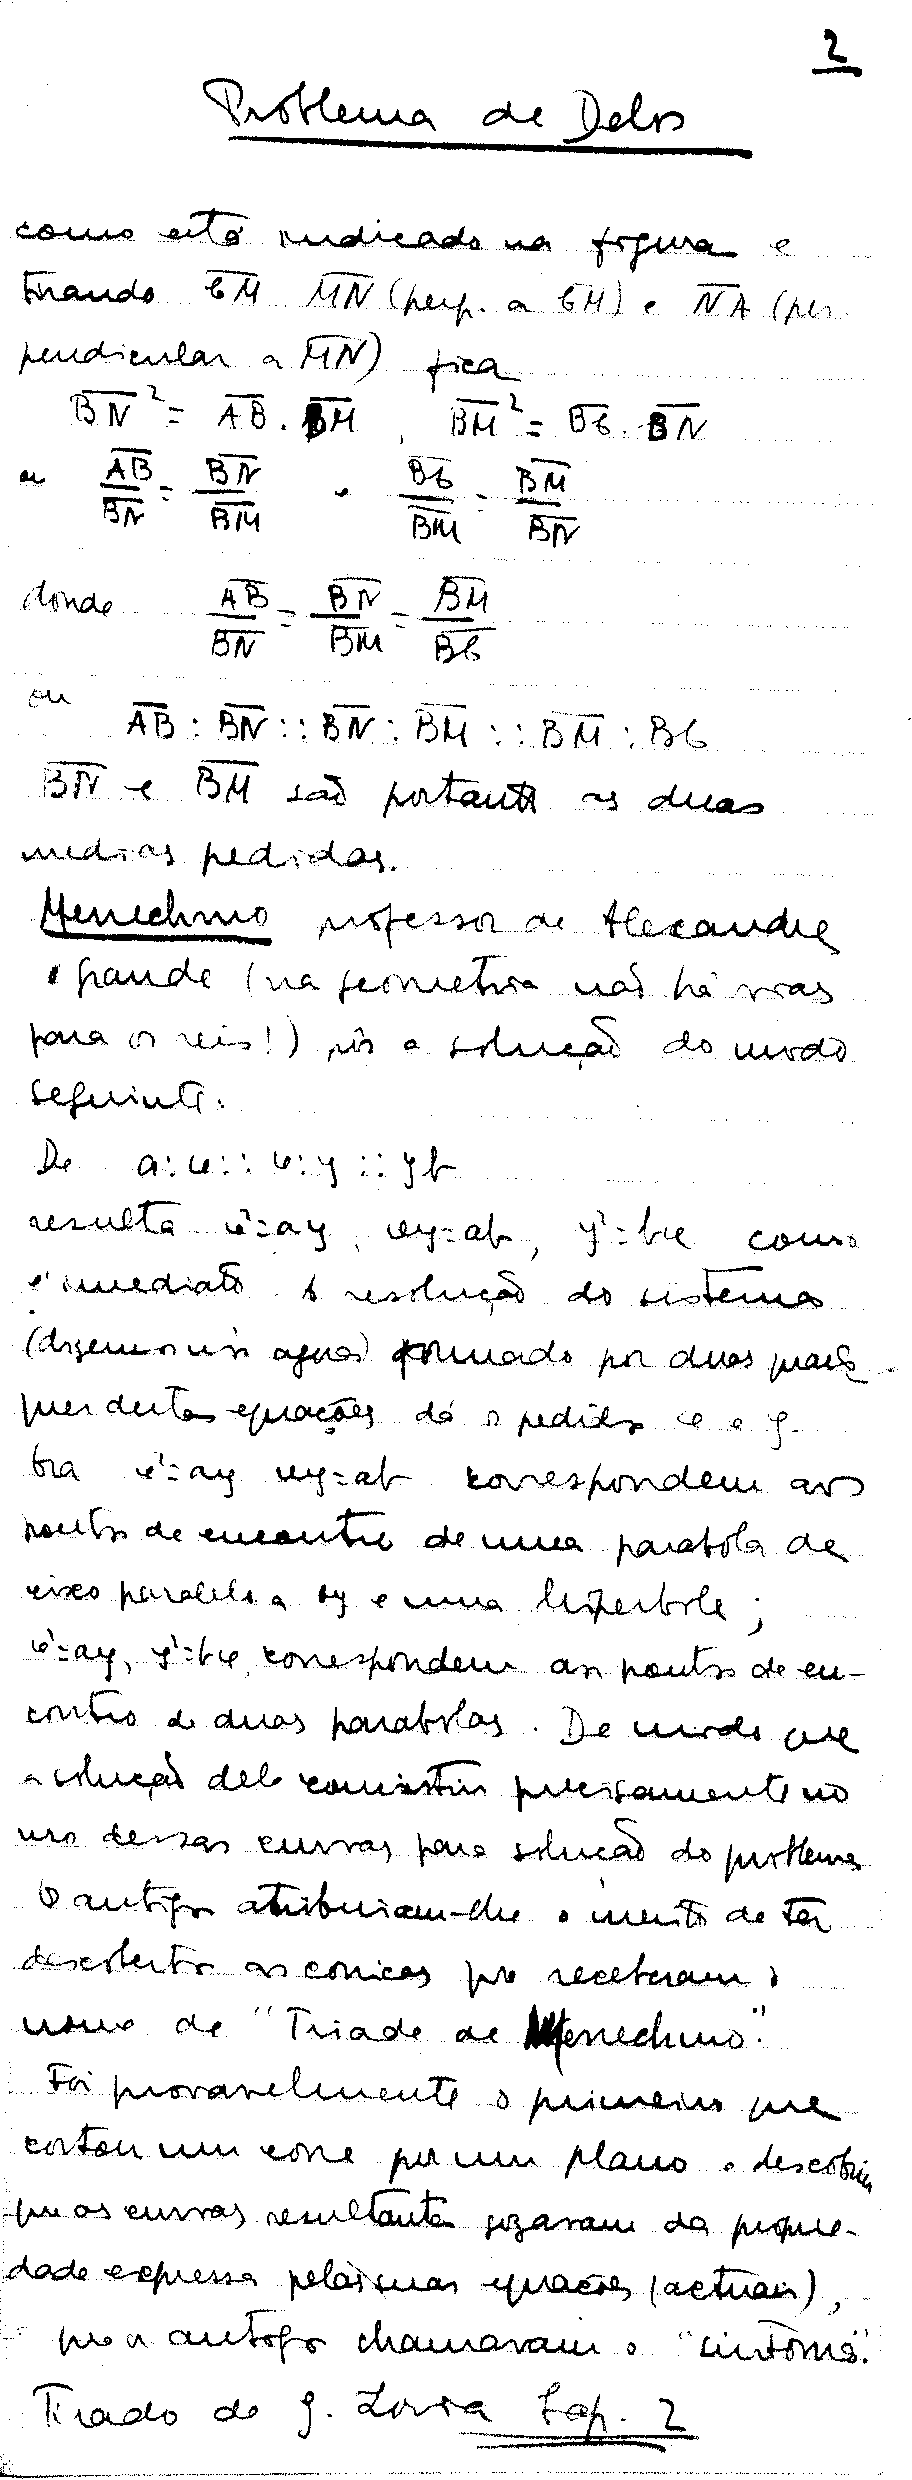 2
Problema de Delos
como está indicado na figura e
tirando C̅M̅ M̅N̅ (perp. a C̅M̅) e N̅A̅ (per
pendicular a M̅N̅) fica
B̅N̅² = A̅B̅ . B̅M̅ , B̅M̅² = B̅C̅ . B̅N̅
ou A̅B̅/B̅N̅ = B̅N̅/B̅M̅ e B̅C̅/B̅M̅ = B̅M̅/B̅N̅
donde A̅B̅/B̅N̅ = B̅N̅/B̅M̅ = B̅M̅/B̅C̅
ou
A̅B̅ : B̅N̅ :: B̅N̅ : B̅M̅ :: B̅M̅ : BC
B̅N̅ e B̅M̅ são portanto as duas
medias pedidas.
Menechmo professor de Alexandre
o grande (na geometria não há vias
para os reis!) pôs a solução do modo
seguinte:
De a:x::x:y::y b
resulta x²=ay, xy=ab, y²=bx como
é imediato. A resolução do sistema
(dizemos nós agora) formado por duas quais-
quer destas equações dá o pedido x e y.
Ora x²=ay xy=ab correspondem aos
pontos de encontro de uma parabola de
eixo paralelo a oy e uma hiperbole;
x²=ay, y²=bx, correspondem aos pontos de en-
contro de duas parabolas. De modo que
a solução dele consistiu precisamente no
uso dessas curvas para solução do problema
Os antigos atribuiam-lhe o merito de ter
descoberto as conicas que receberam o
nome de "Triade de Menechmo".
Foi provavelmente o primeiro que
cortou um cone por um plano e descobriu
que as curvas resultantes gozavam da proprie-
dade expressa pelas suas equações (actuais),
que os antigos chamavam o "sintoma".
Tirado de G. Loria Cap. 2